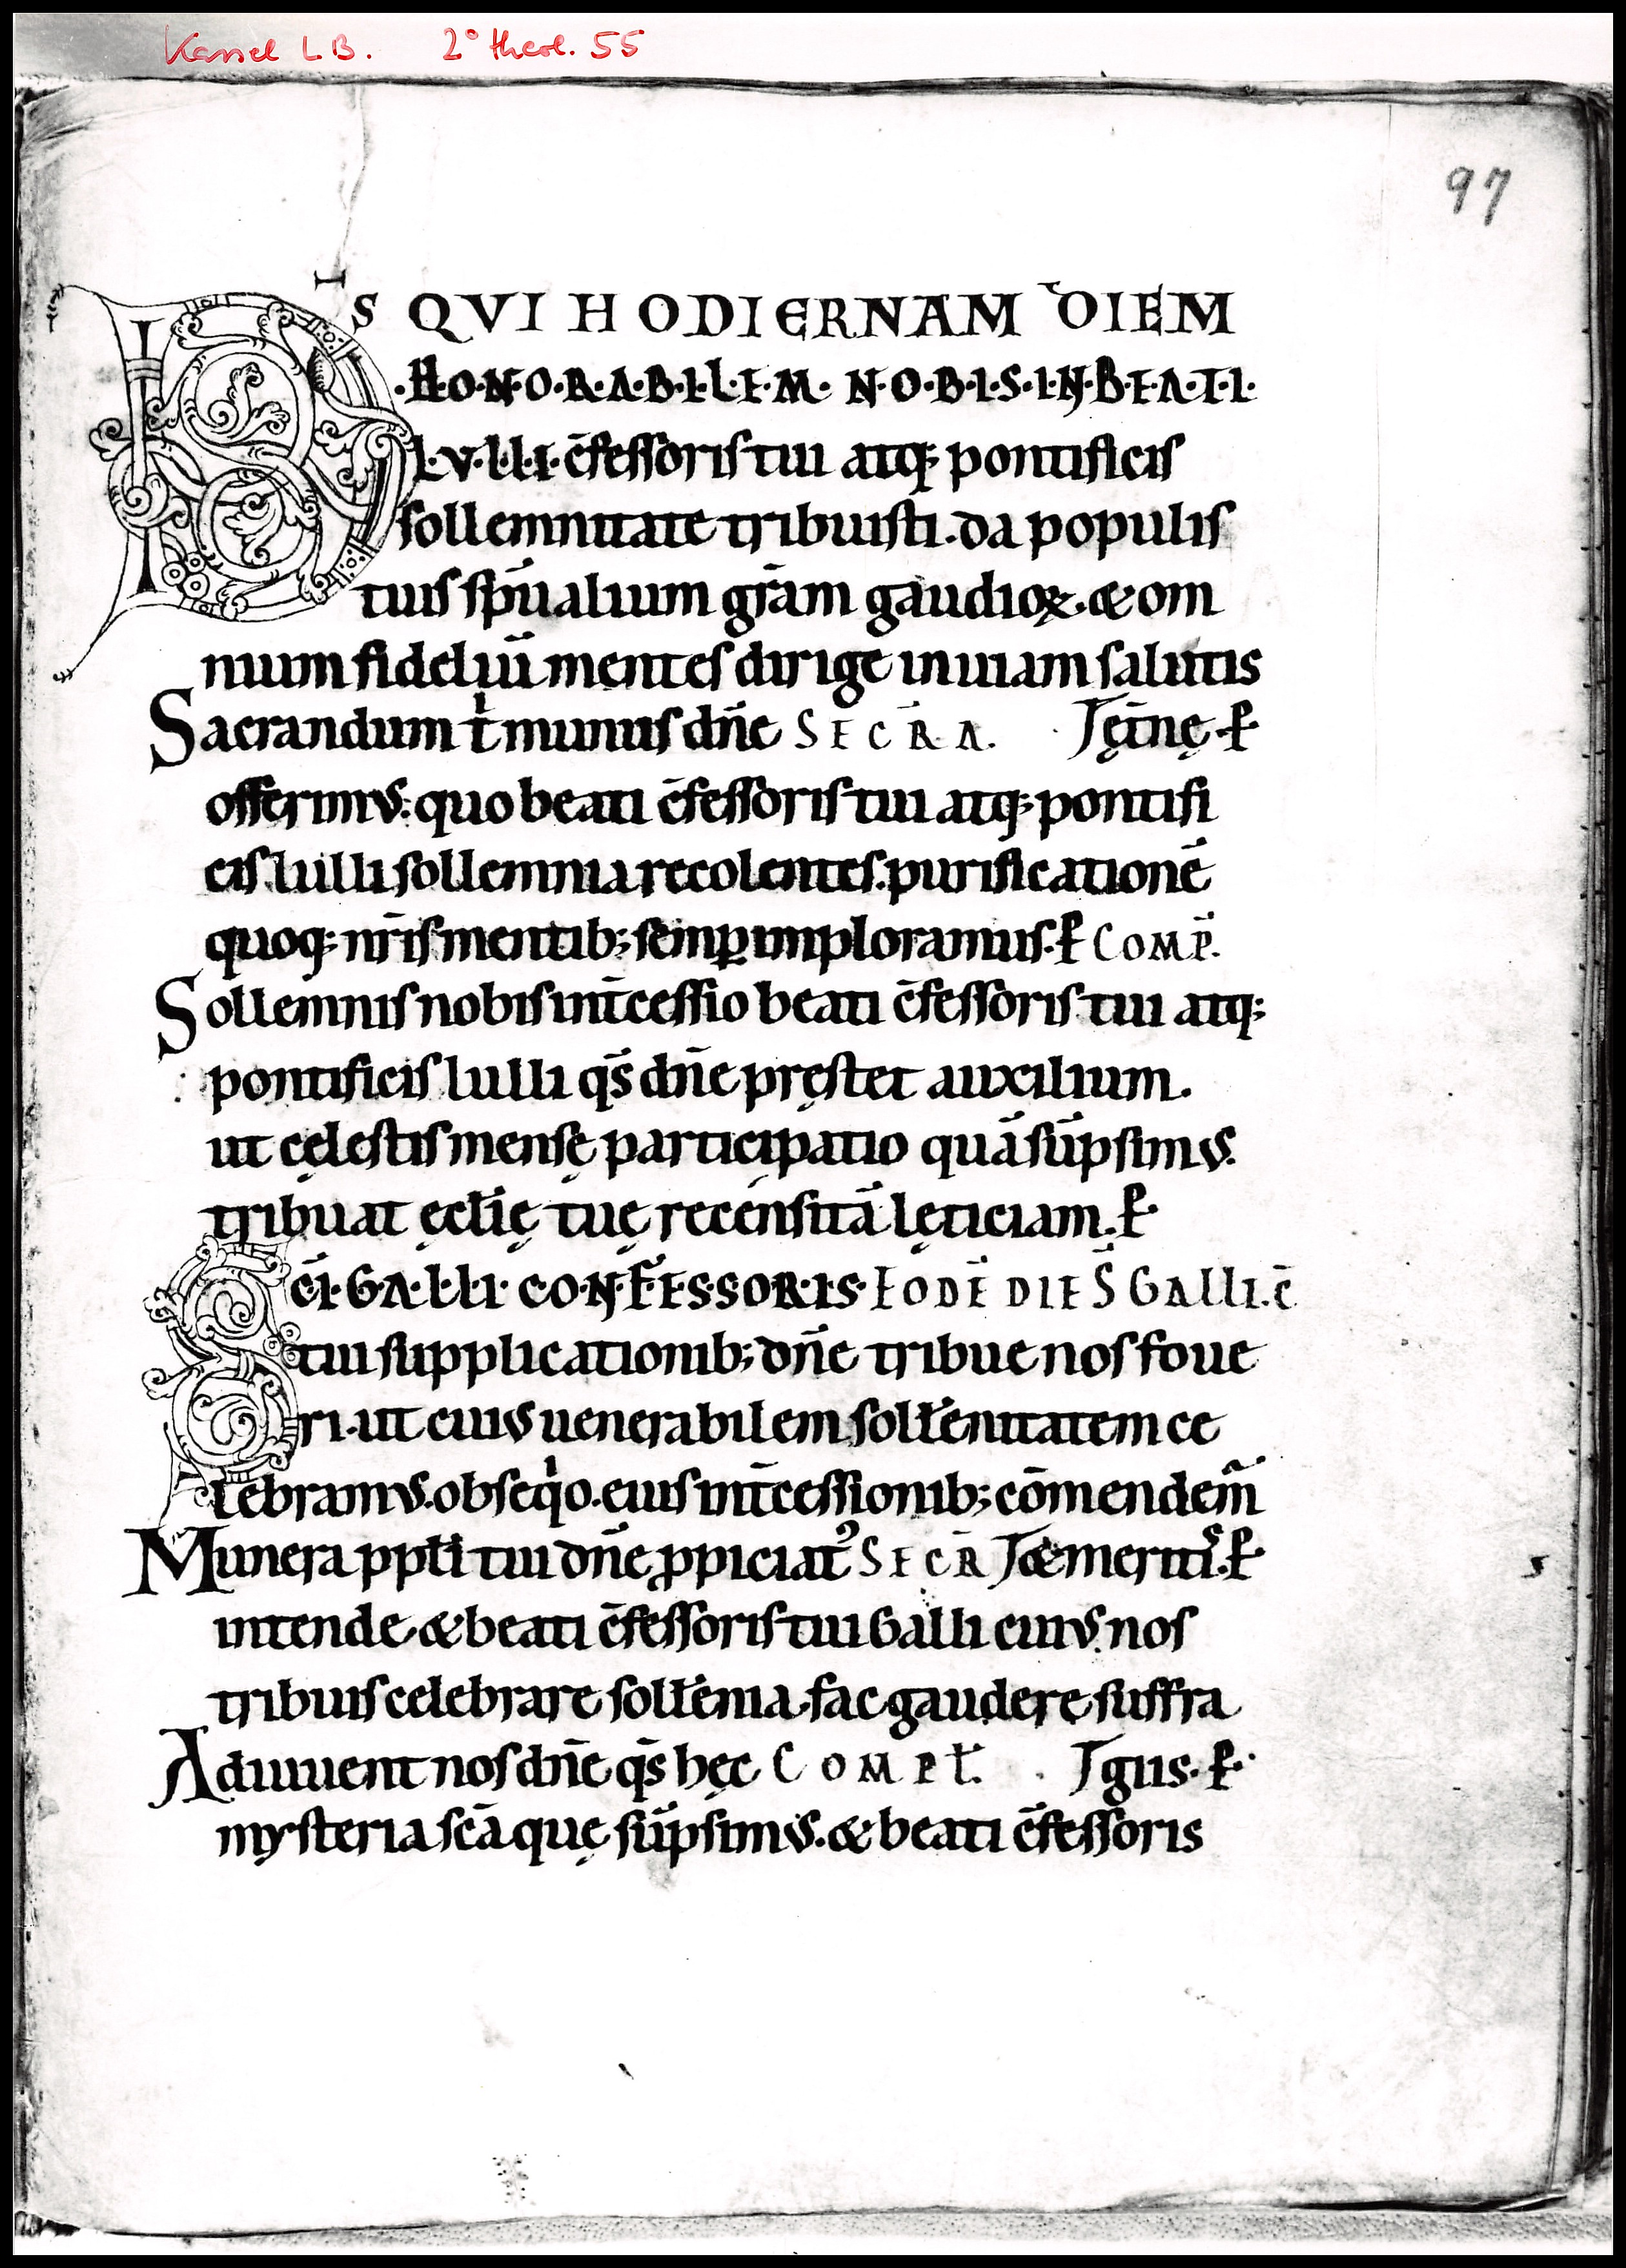 Kassel L.B. 2° theol. 55
97
DS QVI HODIERNAM DIEM
·H·O·N·O·R·A·B·I·L·E·M· N·O·B·I·S·I·N·B·E·A·T·I·
L·V·L·L·I· c̄fessoris tui atq; pontificis
sollemnitate tribuisti. da populis
tuis sp̄ualium gr̄am gaudioꝝ. & om
nium fideliū mentes dirige in uiam salutis
Sacrandum tⁱ munus dn̄e SECRA. ⌈ęt̄nę. ꝑ
offerimus: quo beati c̄fessoris tui atq; pontifi
cis lulli sollemnia recolentes. purificationē
quoq; nr̄is mentib; semꝑ imploramus. ꝑ COMP̄.
Sollemnis nobis int̄cessio beati c̄fessoris tui atq;
pontificis lulli qs̄ dn̄e pręstet auxilium.
ut cęlestis mensę participatio quā sūpsimus.
tribuat ęcl̄ię tuę recensitā lęticiam. ꝑ
SC̄I·GA·L·L·I· CO·N·F·E·S·S·O·R·I·S· EODĒ DIE S̄ GALLI. C̄
tui supplicationib; dn̄e tribue nos foue
ri. ut cuius uenerabilem soll̄ēnitatem ce
lebramus. obseqⁱo. eius int̄cessionib; cōmendem̄
Munera ppl̄i tui dn̄e ꝓpiciat᾽ SECR̄ ⌈& meritis. ꝑ
intende & beati c̄fessoris tui Galli cuius nos
tribuis celebrare soll̄ēnia. fac gaudere suffra
Adiuuent nos dn̄e qs̄ hęc COMPL̄. ⌈giis. ꝑ
mysteria sc̄a quę sūpsimus. & beati c̄fessoris